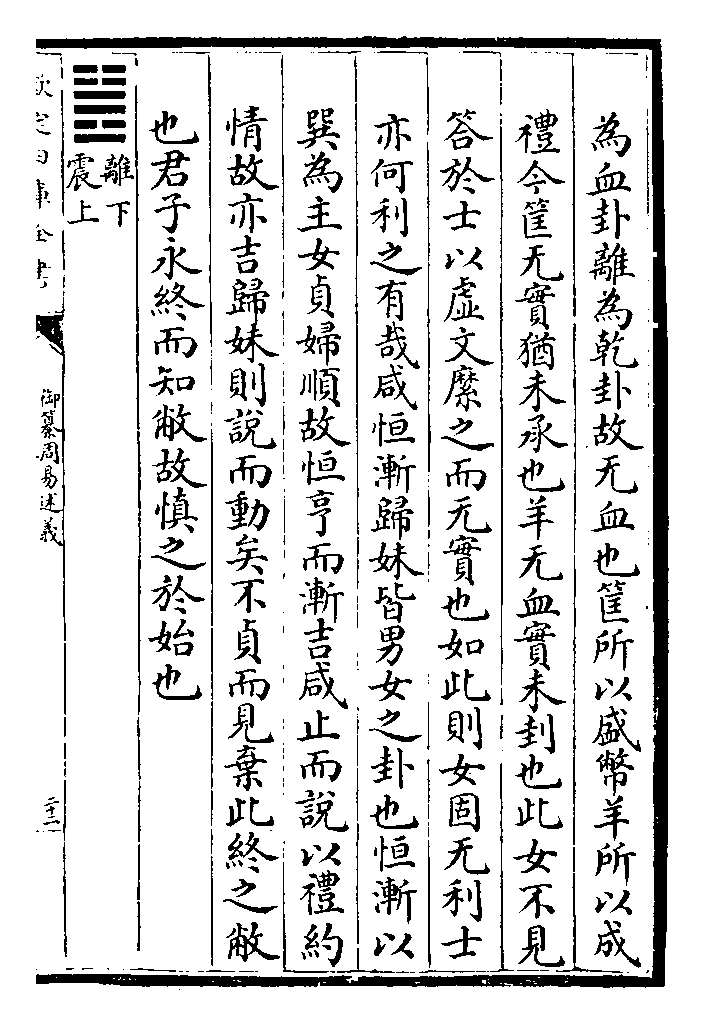 為血卦離為乾卦故无血也筐所以盛幣羊所以成
禮今筐无實猶未承也羊无血實未刲也此女不見
答於士以虛文縻之而无實也如此則女固无利士
亦何利之有哉咸恒漸歸妹皆男女之卦也恒漸以
巽為主女貞婦順故恒亨而漸吉咸止而說以禮約
情故亦吉歸妹則說而動矣不貞而見棄此終之敝
也君子永終而知敝故慎之於始也
䷶離下震上
欽定四庫全書
御纂周易述義
二十二